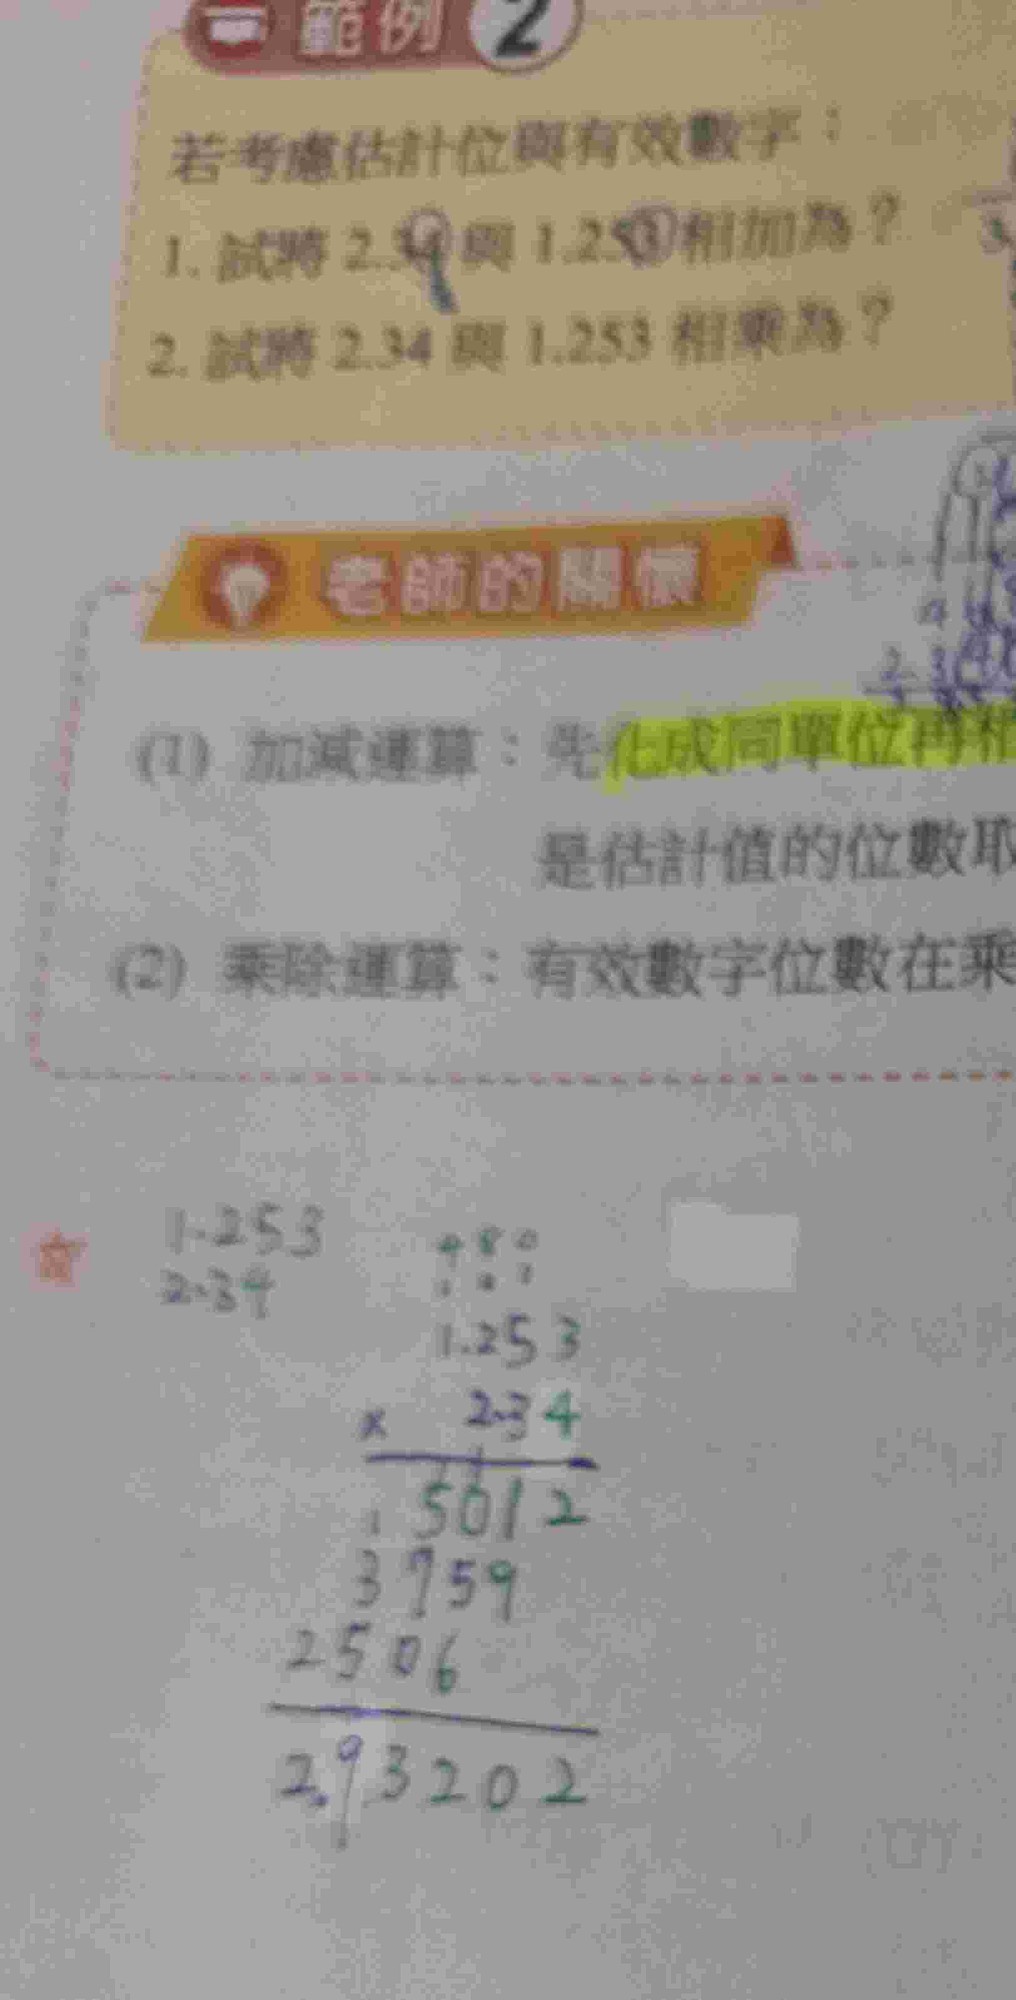 範例 2
若考慮估計位與有效數字：
1. 試將 2.34 與 1.253 相加為？
2. 試將 2.34 與 1.253 相乘為？
老師的關懷
2.34
(1) 加減運算：先化成同單位再相
是估計值的位數取
(2) 乘除運算：有效數字位數在乘
1.253
2.34
1.253
× 2.34
5012
3759
2506
2.93202